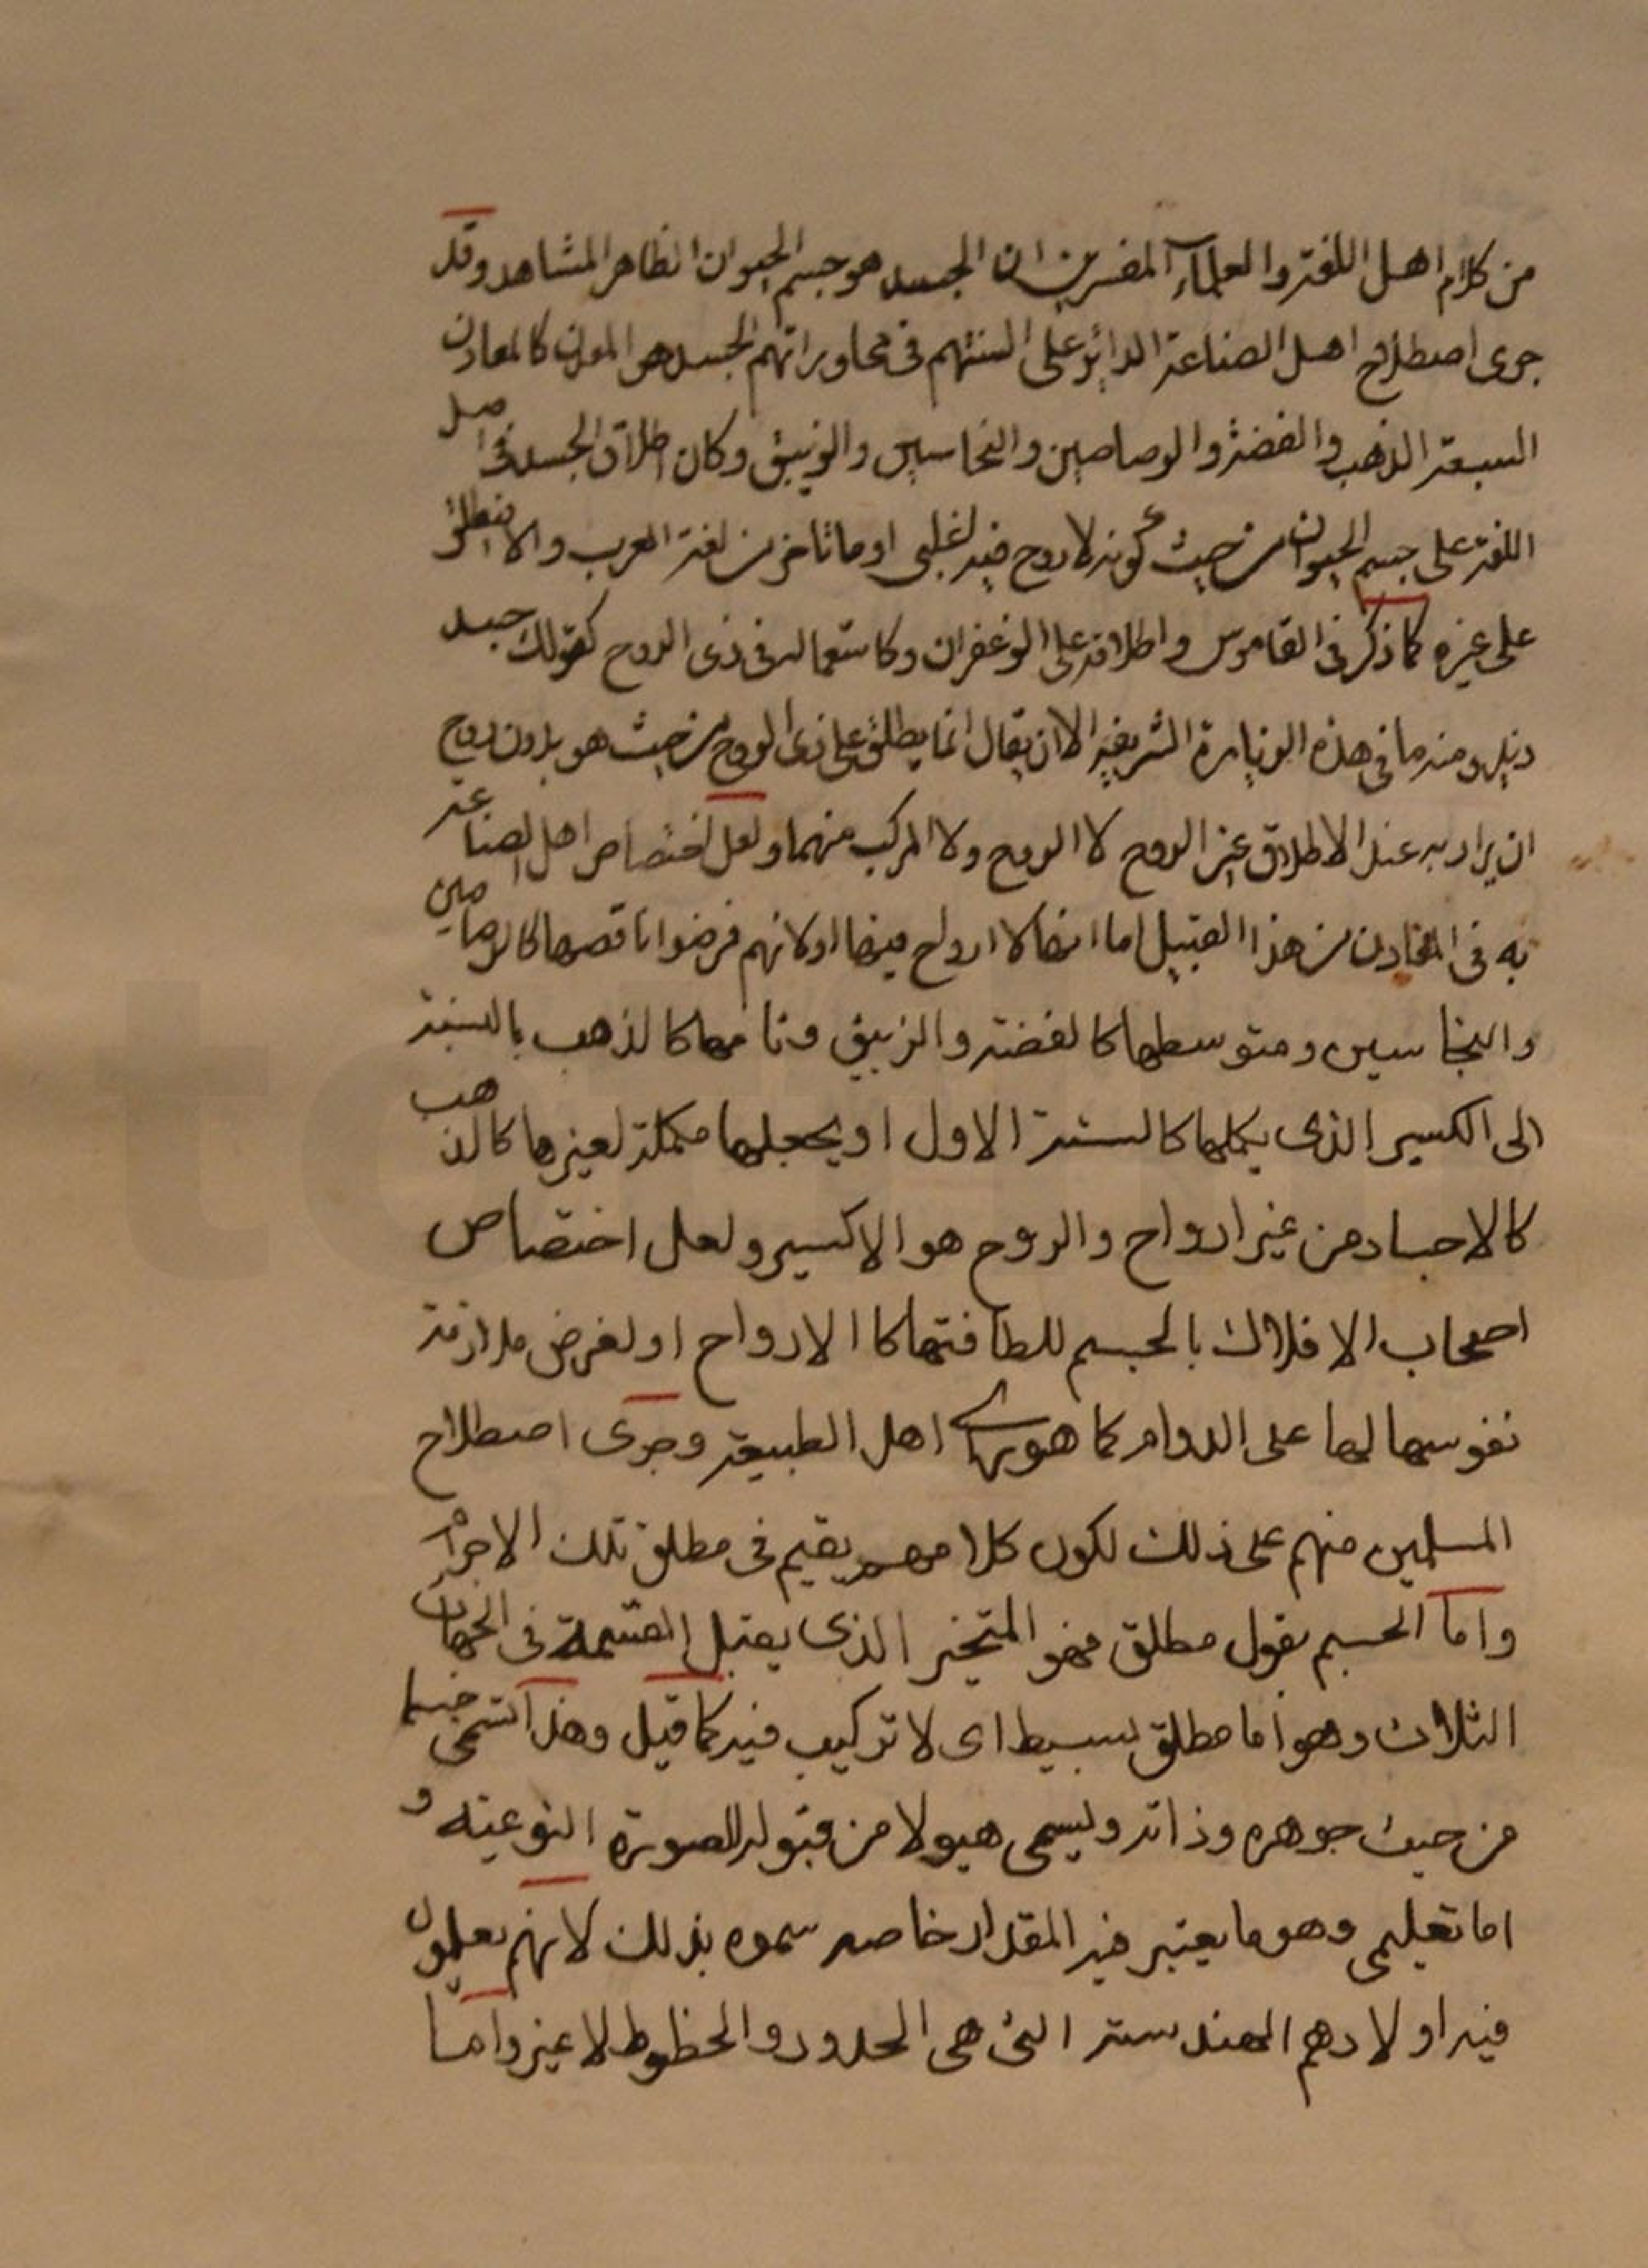 من كلام اهل اللغة والعلمآء المفسرين ان الجسد هو جسم الحيوان الظاهر المشاهد وقد
جرى اصطلاح اهل الصناعة الدائر على السنتهم في محاوراتهم الجسد هو المعدن كالمعادن
السبعة الذهب والفضة والرصاصين والنحاسين والزيبق وكان اطلاق الجسد في اصل
اللغة على جسم الحيوان من حيث كونه لا روح فيه اغلبى او ما تاخر من لغة العرب والا
على غيره كما ذكر في القاموس واطلاقه على الزعفران وكاستعماله في ذى الروح كقولك جسد
ومنه ما في هذه الزيارة الشريفة الا ان يقال انما يطلق على ذى الروح من حيث هو بدون روح
ان يراد به عند الاطلاق غير الروح لا الروح ولا المركب منهما ولعل اختصاص اهل الصناعة
به في المعادن من هذا القبيل اما انها لا ارواح فيها او لانهم فرضوا ناقصها كالرصاصين
والنحاسين ومتوسطها كالفضة والزيبق وتامها كالذهب بالنسبة
الى الكسير الذى يكملها كالستة الاول او يجعلها مكملة لغيرها كالذهب
كالاجساد من غير ارواح والروح هو الاكسير ولعل اختصاص
اصحاب الافلاك بالجسم للطافتها كا الارواح او لغرض ملازمة
نفوسها لها على الدوام كما هو راى اهل الطبيعة وجرى اصطلاح
المسلمين منهم على ذلك لكون كلامهم يقيم في مطلق تلك الاجرام
واما الجسم بقول مطلق فهو المتحيز الذى يقبل القسمة في الجهات
الثلاث وهو اما مطلق بسيط اى لا تركيب فيه كما قيل وهذا تسمى جسما
من حيث جوهره وذاته ويسمى هيولا من قبوله للصورة النوعيه و
اما تعليمى وهو ما يعتبر فيه المقدار خاصه سموه بذلك لانهم يعلمون
فيه اولادهم الهندسة التى هى الحدود والخطوط لا غير واما